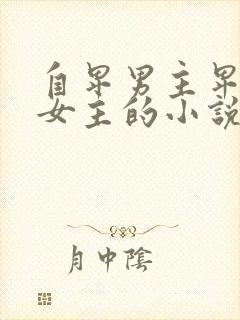 自卑男主卑
女主的小說
月中陰